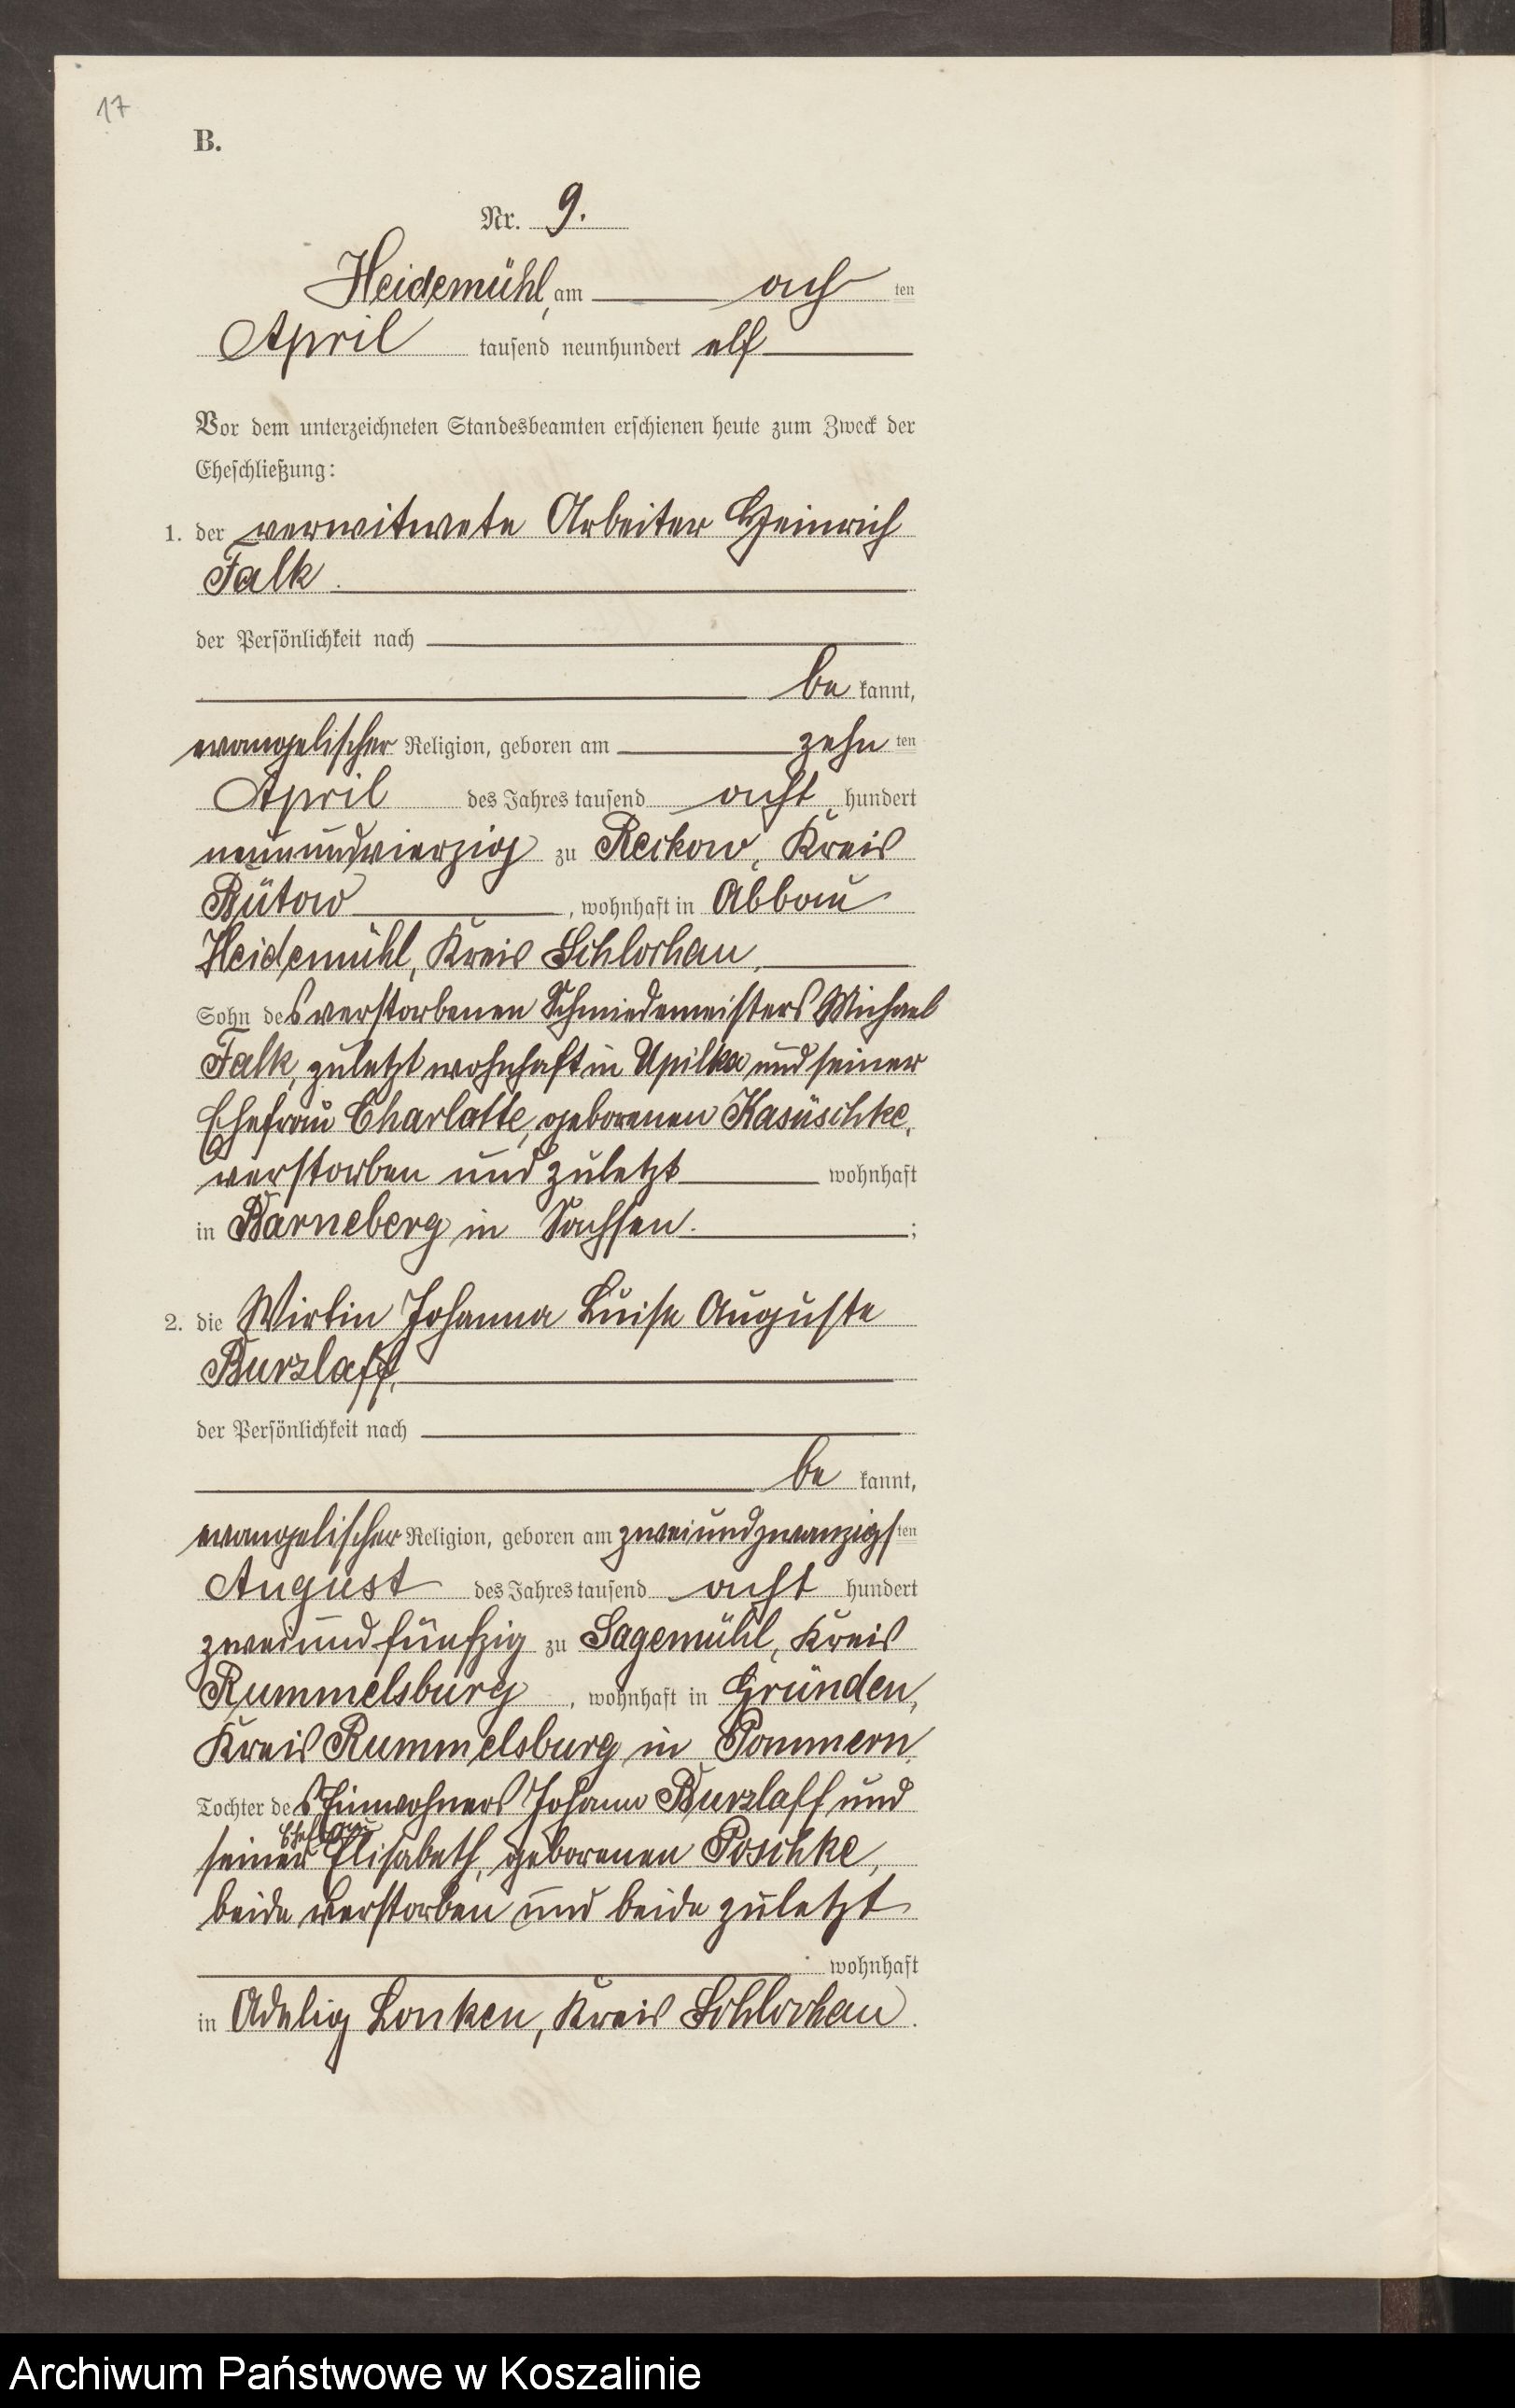 17
B.
Nr. 9.
Heidemühl, am ach ten
April tausend neunhundert elf
Vor dem unterzeichneten Standesbeamten erschienen heute zum Zweck der
Eheschließung:
1. der verwitwete Arbeiter Heinrich
Falk.
der Persönlichkeit nach
be kannt,
evangelischer Religion, geboren am zehn ten
April des Jahres tausend acht hundert
neunundvierzig zu Reckow, Kreis
Bütow, wohnhaft in Abbau
Heidemühl, Kreis Schlochau,
Sohn des verstorbenen Schmiedemeisters Michael
Falk, zuletzt wohnhaft in Upilka und seiner
Ehefrau Charlotte, geborenen Kasüschke,
verstorben und zuletzt wohnhaft
in Barneberg in Sachsen. ;
2. die Wirtin Johanna Luise Auguste
Burzlaff,
der Persönlichkeit nach
be kannt,
evangelischer Religion, geboren am zweiundzwanzigs ten
August des Jahres tausend acht hundert
zweiundfünfzig zu Sagemühl, Kreis
Rummelsburg, wohnhaft in Gründen,
Kreis Rummelsburg in Pommern
Tochter des Einwohners Johann Burzlaff und
seiner Ehefrau Elisabeth, geborenen Poschke,
beide verstorben und beide zuletzt
wohnhaft
in Adelig Lonken, Kreis Schlochau.
Archiwum Państwowe w Koszalinie